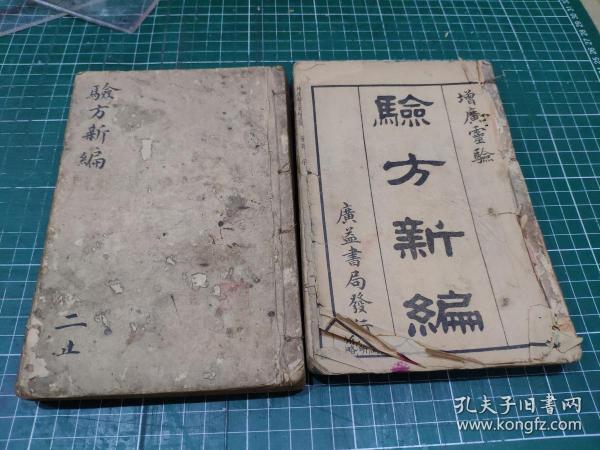 驗方新編
二止
增廣靈驗
驗方新編
廣益書局發行
孔夫子旧書网
www.kongfz.com